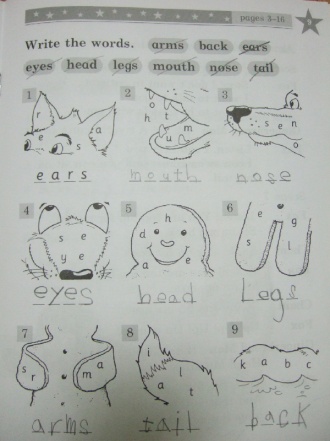 pages 3-16
1
Write the words. arms back ears
eyes head legs mouth nose tail
1 2 3
r e s a
o h t u m
s e n o
ears mouth nose
4 5 6
s e y e
h d a e
e g s l
eyes head Legs
7 8 9
s r m a
i l a t
k a b c
arms tail back